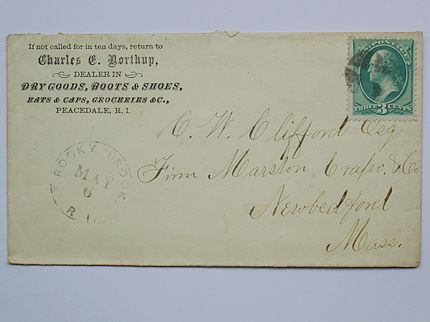 If not called for in ten days, return to
Charles E. Northup,
DEALER IN
DRY GOODS, BOOTS & SHOES,
HATS & CAPS, GROCERIES &C.,
PEACEDALE, R. I.
U.S. POSTAGE
THREE 3 CENTS
C. W. Clifford Esq
Firm Marston Crapo, & Co
Newbedford
Mass.
ROCKY BROOK
MAY
6
R. I.